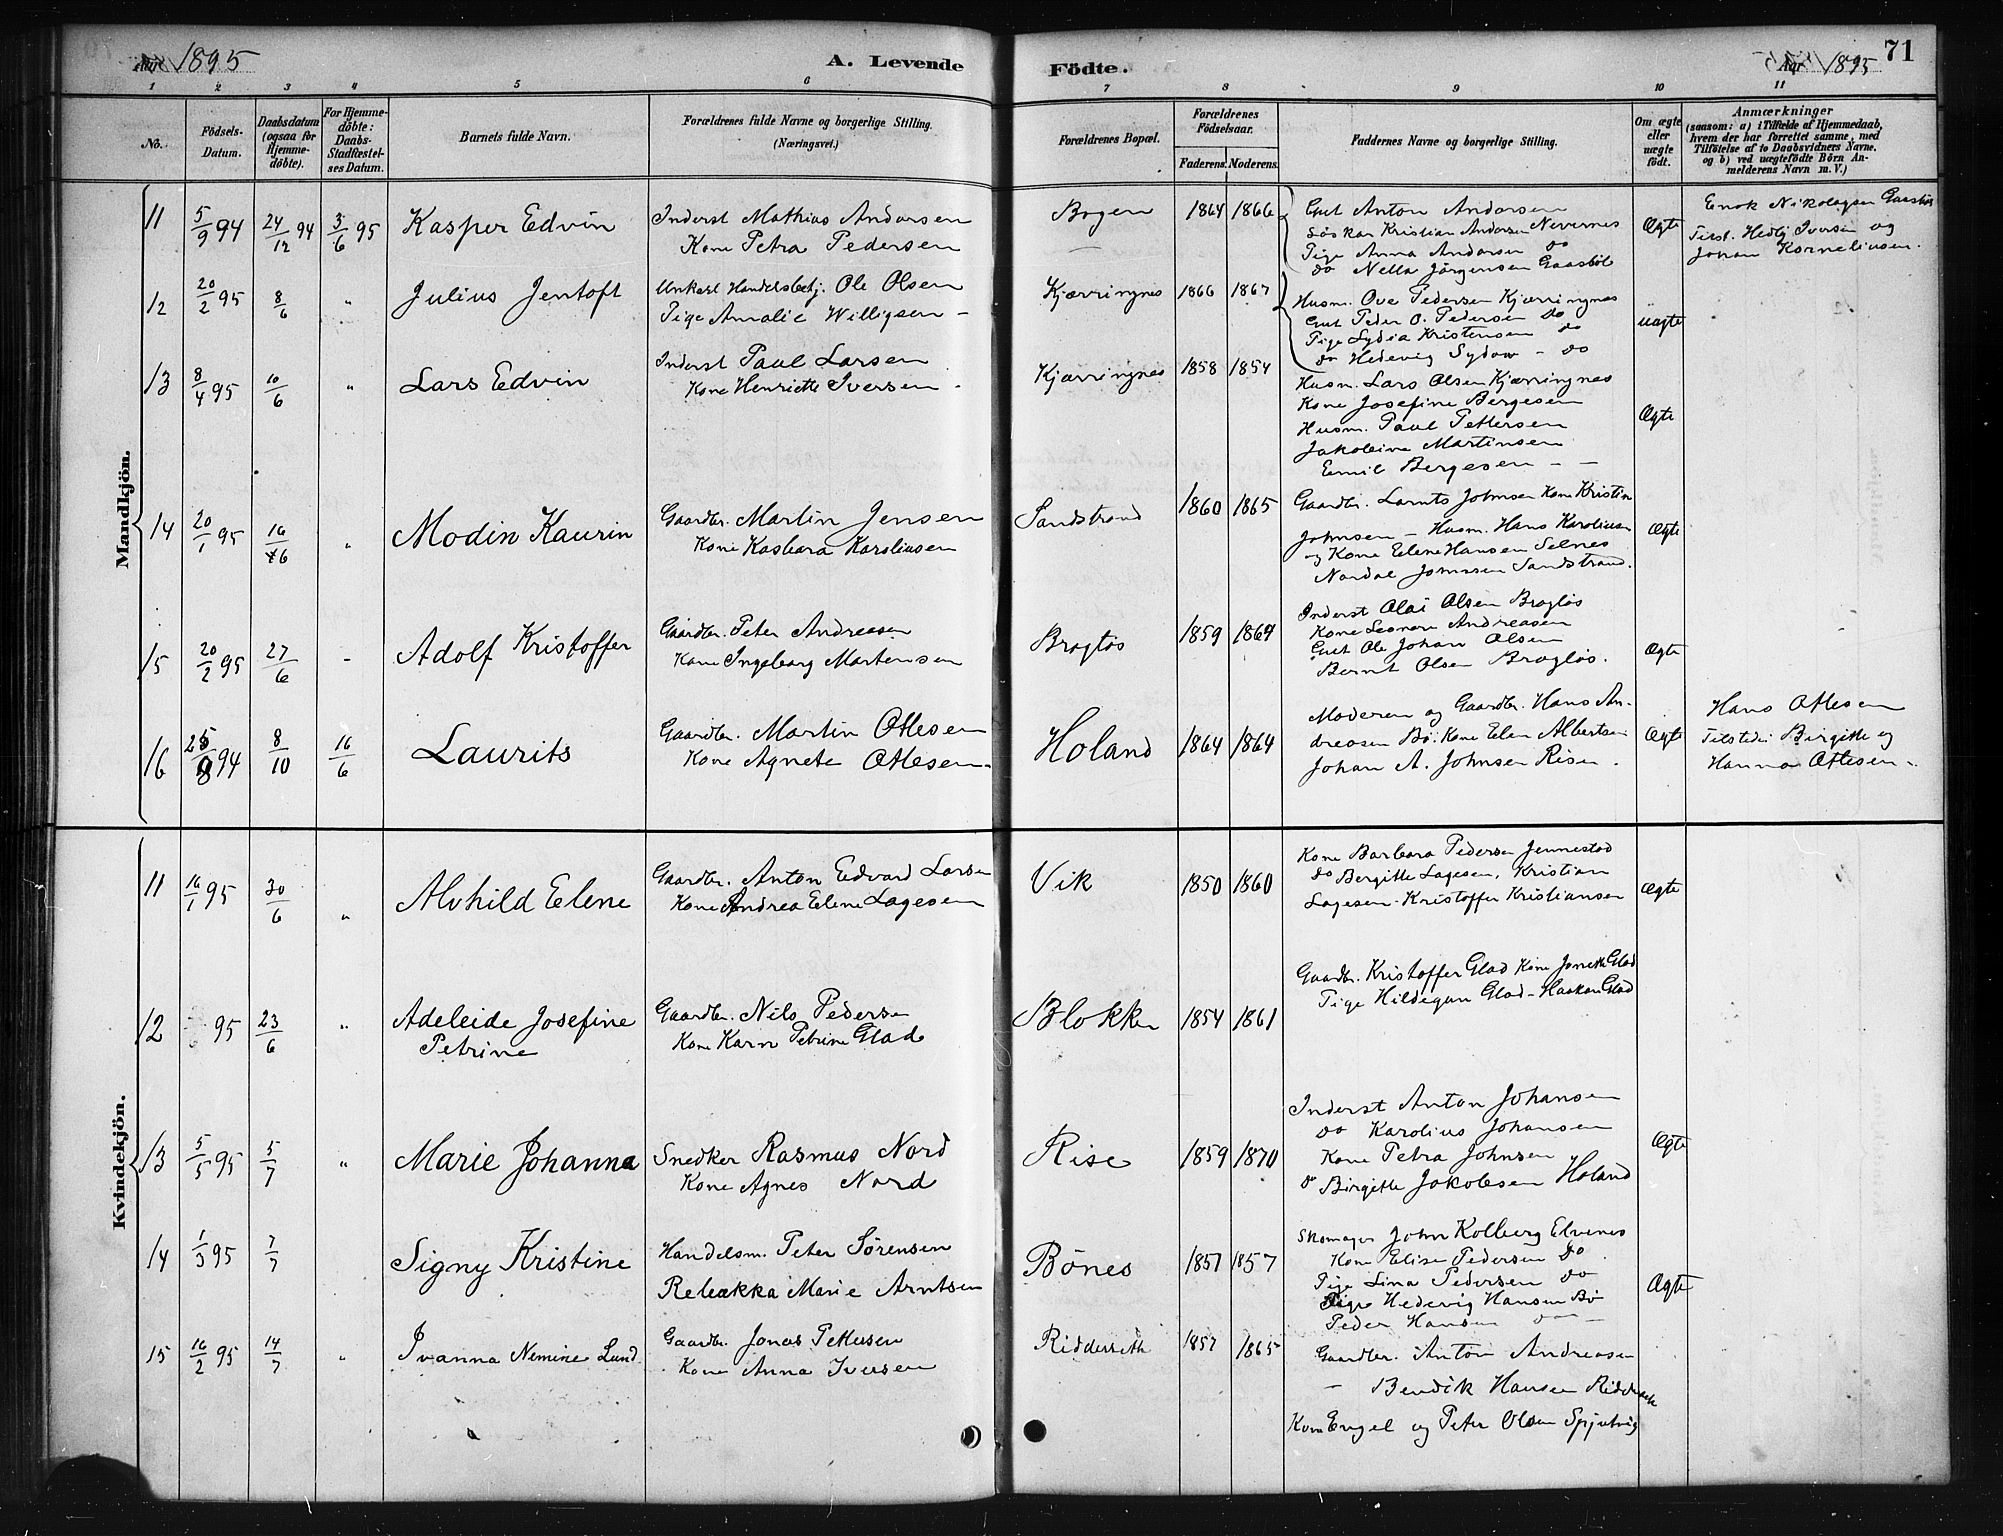 Aar 1895
A. Levende
Födte.
Aar 1895
71
1 2 3 4 5 6 7 8 9 10 11
No.
Födsels-
Datum.
Daabsdatum
(ogsaa for
Hjemme-
döbte).
For Hjemme-
döbte:
Daabs-
Stadfæstel-
ses Datum.
Barnets fulde Navn.
Forældrenes fulde Navne og borgerlige Stilling.
(Næringsvei.)
Forældrenes Bopæl.
Forældrenes
Födselsaar.
Faderens. Moderens.
Faddernes Navne og borgerlige Stilling.
Om ægte
eller
uægte
födt.
Anmærkninger
(saasom: a) i Tilfælde af Hjemmedaab,
hvem der har forrettet samme, med
Tilföielse af to Daabsvidners Navne.
og b) ved uægtefödte Börn An-
melderens Navn m. V.)
Mandkjön.
11 5/9 94 24/12 94 3/6 95 Kasper Edvin
Inderst Mathias Andersen
Kone Petra Pedersen
Bogen 1864 1866
Gut Anton Andersen
Søskar Kristian Andersen Nevernes
Pige Anna Andersen do
do Nella Jörgensen Gaasböl
Ægte
Enok Nikolaysen Gaasböl
Tilst. Hedlj Iversen og
Johan Korneliusen.
12 20/2 95 8/6 " Julius Jentoft
Unkarl Handelsbetj. Ole Olsen
Pige Amalie Willigsen -
Kjærringnes 1866 1867
Husm. Ove Pedersen Kjærringnes
Gut Peder O. Pedersen do
Pige Lydia Kristensen do
do Hedevig Sydow - do
uægte
13 8/4 95 10/6 " Lars Edvin
Inderst Paul Larsen
Kone Henriette Iversen -
Kjærringnes 1858 1854
Husm. Lars Olsen Kjærringnes
Kone Josefine Bergesen
Husm. Paul Pettersen
Jakobine Martinsen
Emil Bergesen - -
Ægte
14 20/1 95 16/6 " Modin Kaurin
Gaardbr. Martin Jensen
Kone Kasbara Karoliusen
Sandstrand 1860 1865
Gaardbr. Lornts Johnsen Kone Kristin
Johnsen - Husm. Hans Karoliusen
og Kone Elene Hansen Selnes
Nordal Johnsen Sandstrand.
Ægte
15 20/2 95 27/6 - Adolf Kristoffer
Gaardbr. Peter Andreasen
Kone Ingeborg Martensen
Brogløs 1859 1864
Inderst Olai Olsen Brogløs
Kone Leonore Andreasen
Gut Ole Johan Olsen
Bernt Olsen Brogløs.
Ægte
16 25/8 94 8/10 16/6 Laurits
Gaardbr. Martin Ottesen
Kone Agnete Ottesen-
Holand 1864 1864
Moderen og Gaardbr. Hans An-
dreasen Bö. Kone Elen Albertsen
Johan A. Johnsen Risen.
Ægte
Hans Ottesen
Tilstede: Birgitte og
Hanna Ottesen -
Kvindekjön.
11 16/1 95 30/6 " Alvhild Elene
Gaardbr. Anton Edvard Larsen
Kone Andrea Elene Lagesen
Vik 1850 1860
Kone Barbara Pedersen Jennestad
do Bergitte Lagesen, Kristian
Lagesen - Kristoffer Kristiansen
Ægte
12 95 23/6 " Adeleide Josefine
Petrine
Gaardbr. Nils Pedersen
Kone Karn Petrine Glad
Blokken 1854 1861
Gaardbr. Kristoffer Glad Kone Jonette Glad
Pige Hildegun Glad - Haakon Glad
13 5/5 95 5/7 " Marie Johanna
Snedker Rasmus Nord
Kone Agnes Nord
Rise 1859 1870
Inderst Anton Johansen
do Karolius Johansen
Kone Petra Johnsen
do Birgitte Jakobsen Holand
Ægte
14 1/3 95 7/7 Signy Kristine
Handelsm. Peter Sörensen
Rebækka Marie Arntsen
Bönes 1857 1857
Skomager John Kolberg Elvenes
Kone Elise Pedersen do
Pige Lina Pedersen do
Pige Hedevig Hansen Bö
Peder Hansen do -
Ægte
15 16/2 95 14/7 " Ivanna Nemine Lund
Gaardbr. Jonas Pettersen
Kone Anna Iversen
Riddersæth 1857 1865
Gaardbr. Anton Andreasen
- Bendik Hansen Riddersæth
Kone Engel og Peter Olsen Spjutvig